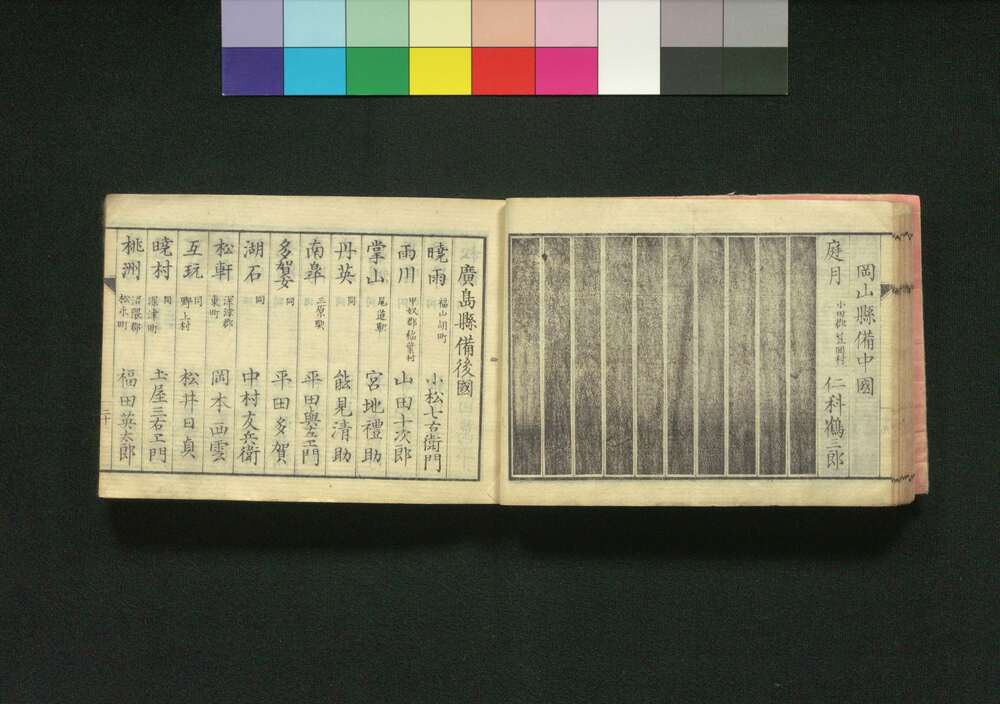 岡山縣備中國
庭月 小田郡笠岡村 仁科鶴三郎
廣島縣備後國
曉雨 福山胡町 小松七右衛門
雨川 甲奴郡稲草村 山田十次郎
掌山 尾道駅 宮地禮助
丹英 同 能見清助
南皐 三原駅 平田與左エ門
多賀女 同 平田多賀
湖石 同 中村友兵衛
松軒 深津郡東町 岡本西雲
互玩 同野上村 松井日真
曉村 同深津町 土屋三右エ門
桃洲 沼隈郡松永町 福田英太郎
三十